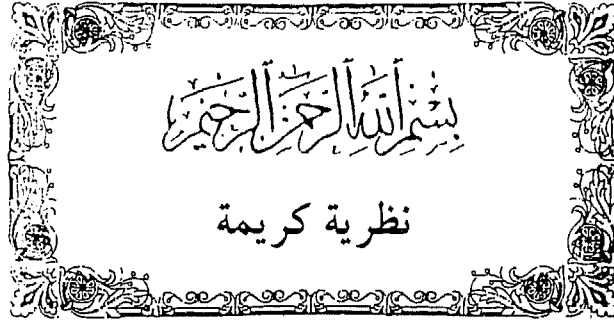 بِسْمِ اللَّهِ الرَّحْمَنِ الرَّحِيمِ
نظرية كريمة